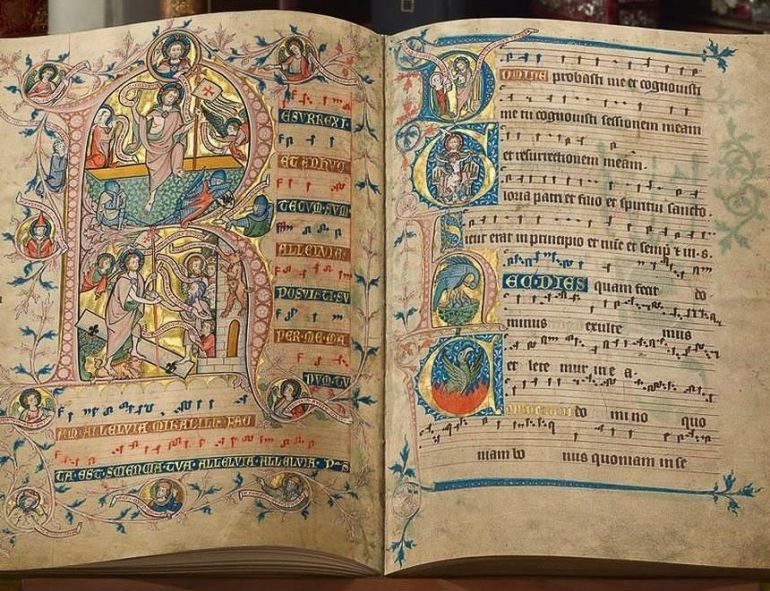 RESURREXI
ET ADHUC
TECUM SUM
ALLELVIA
POSVISTI SV
PER ME MA
NUM TV
AM ALLELVIA MIRABILIS FAC
TA EST SCIENCIA TVA ALLELVIA ALLELVIA P S
DOMINE probasti me et cognovisti
me tu cognovisti sessionem meam
et resurrectionem meam.
Gloria patri et filio et spiritui sancto.
Sicut erat in principio et nunc et semp et in s.
HEC DIES quam fecit do
minus exulte mus
et lete mur in e a.
CONFITEMINI do mino quo
niam bo nus quoniam in se